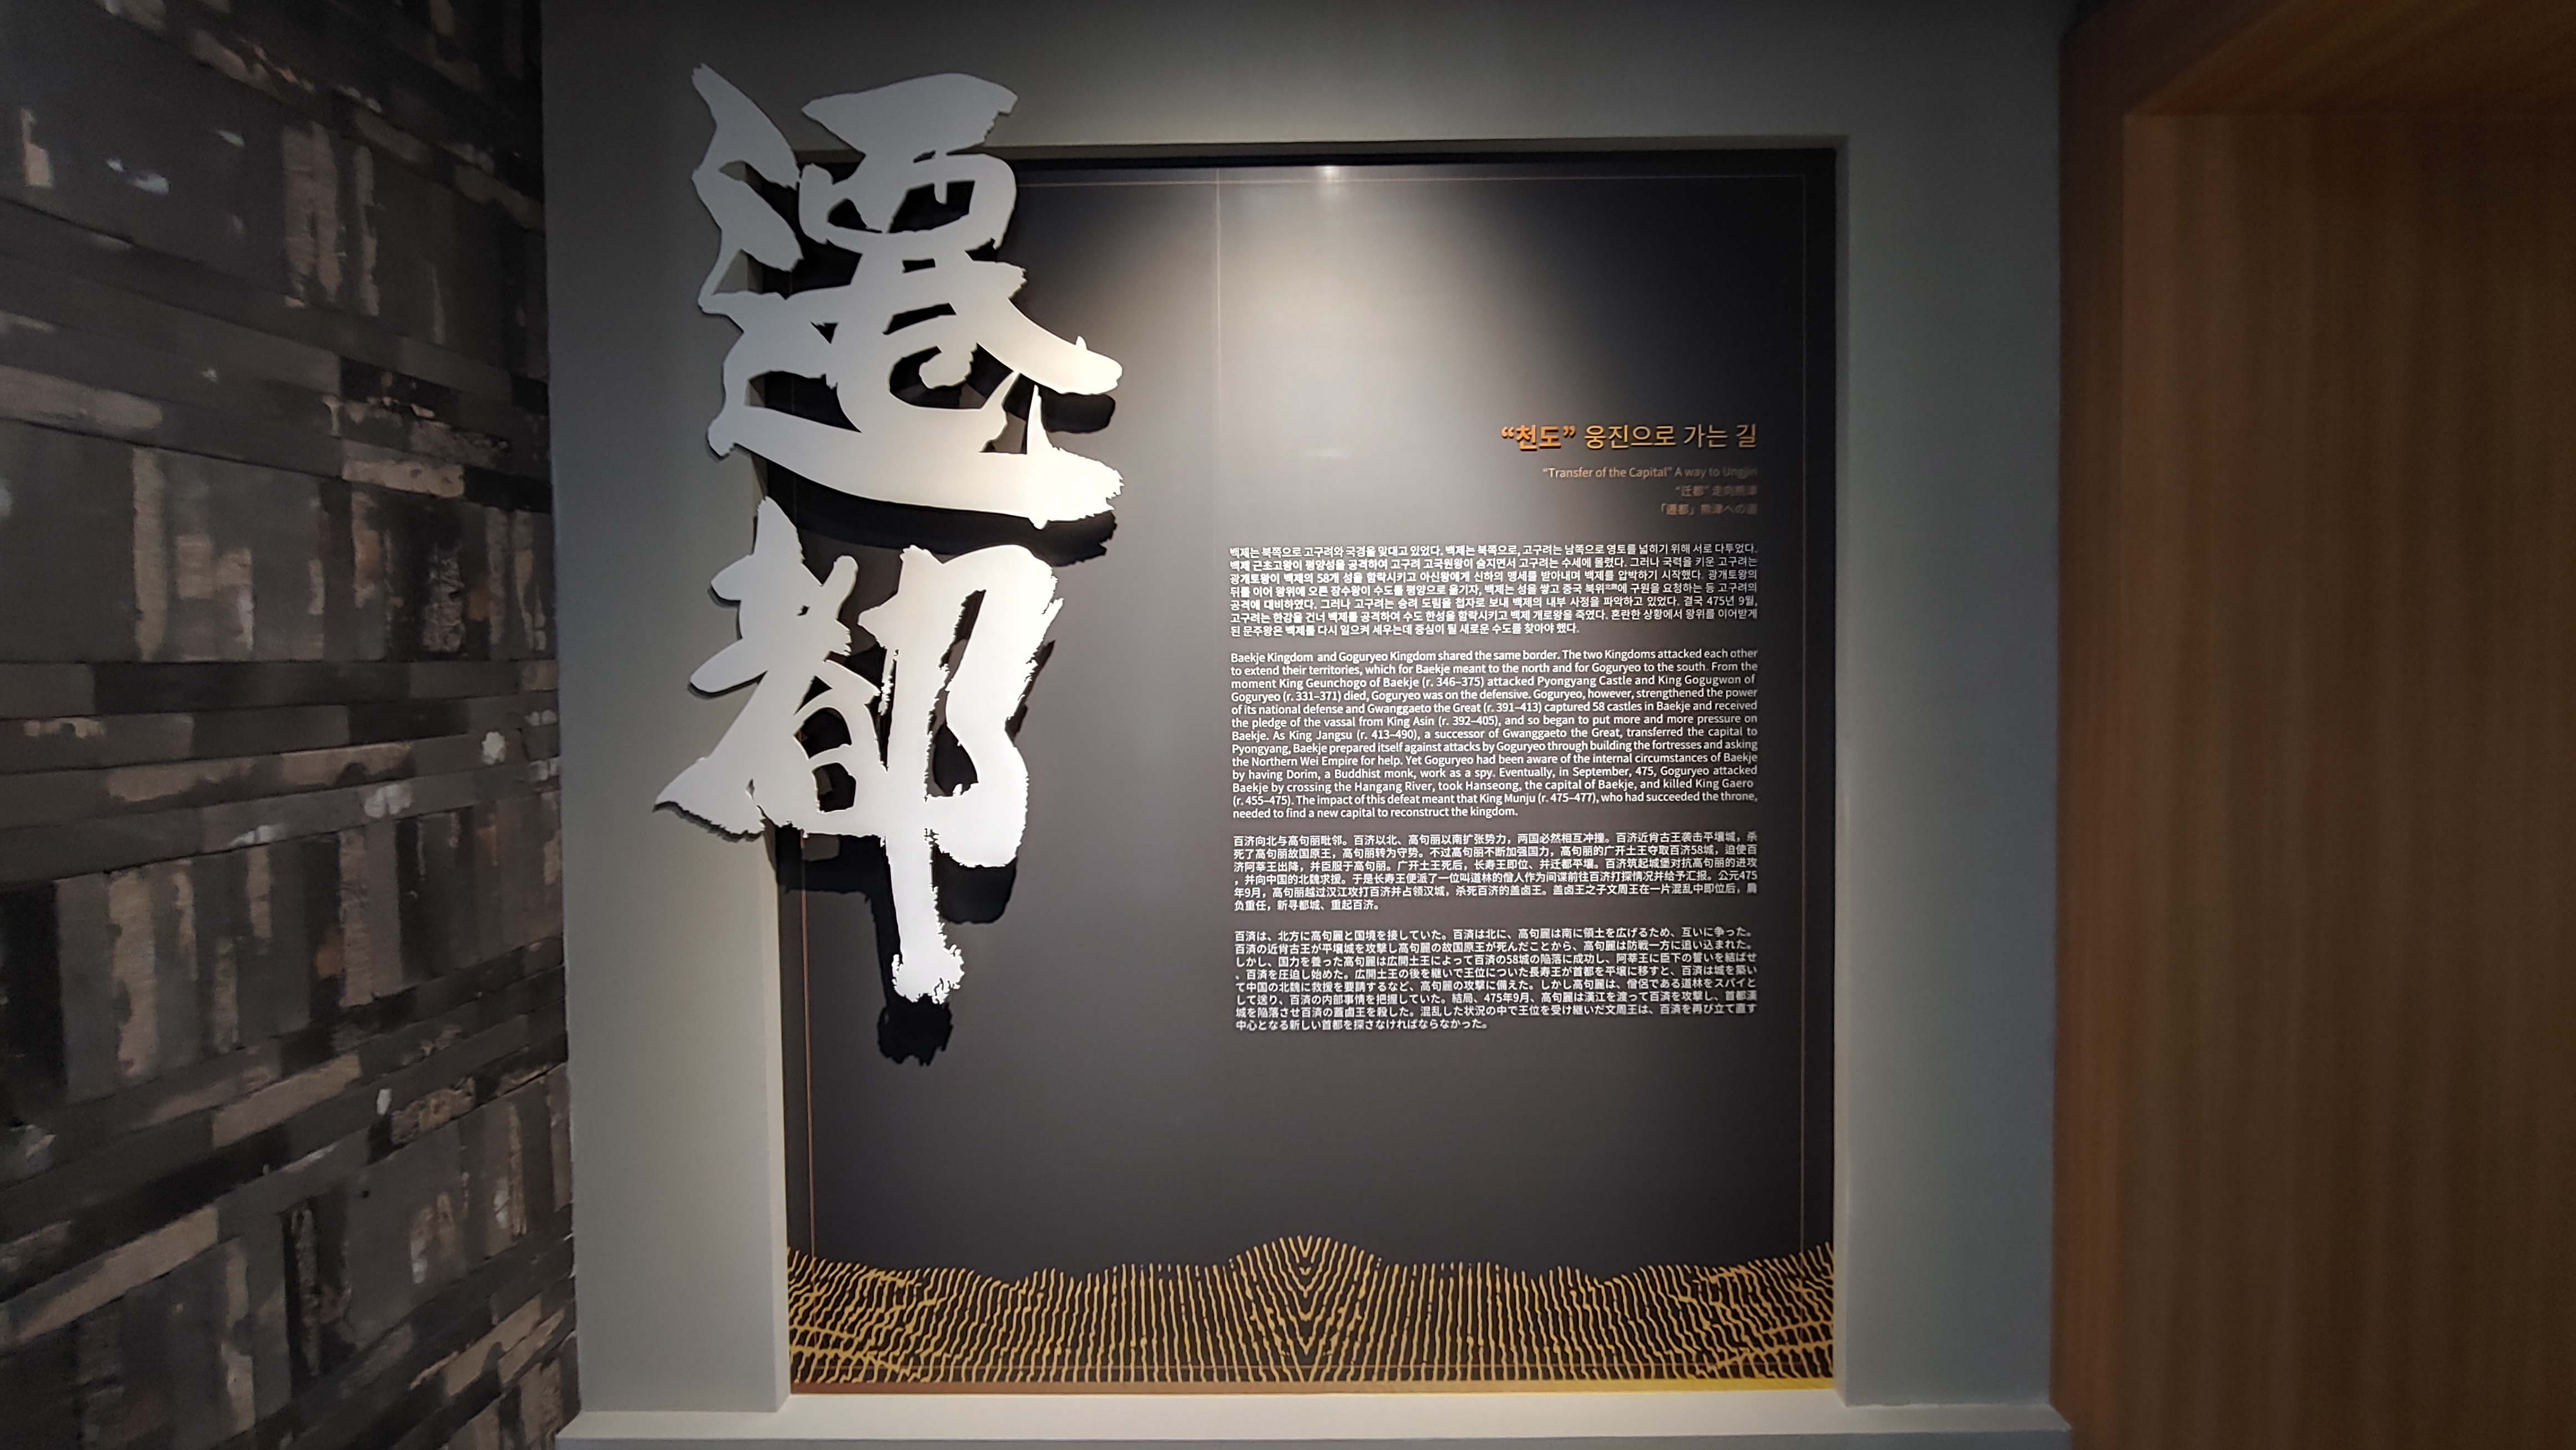 遷
都
“천도” 웅진으로 가는 길
“Transfer of the Capital” A way to Ungjin
“迁都” 走向熊津
「遷都」熊津への道
백제는 북쪽으로 고구려와 국경을 맞대고 있었다. 백제는 북쪽으로, 고구려는 남쪽으로 영토를 넓히기 위해 서로 다투었다.
백제 근초고왕이 평양성을 공격하여 고구려 고국원왕이 숨지면서 고구려는 수세에 몰렸다. 그러나 국력을 키운 고구려는
광개토왕이 백제의 58개 성을 함락시키고 아신왕에게 신하의 맹세를 받아내며 백제를 압박하기 시작했다. 광개토왕의
뒤를 이어 왕위에 오른 장수왕이 수도를 평양으로 옮기자, 백제는 성을 쌓고 중국 북위에 구원을 요청하는 등 고구려의
공격에 대비하였다. 그러나 고구려는 승려 도림을 첩자로 보내 백제의 내부 사정을 파악하고 있었다. 결국 475년 9월,
고구려는 한강을 건너 백제를 공격하여 수도 한성을 함락시키고 백제 개로왕을 죽였다. 혼란한 상황에서 왕위를 이어받게
된 문주왕은 백제를 다시 일으켜 세우는데 중심이 될 새로운 수도를 찾아야 했다.
Baekje Kingdom and Goguryeo Kingdom shared the same border. The two Kingdoms attacked each other
to extend their territories, which for Baekje meant to the north and for Goguryeo to the south. From the
moment King Geunchogo of Baekje (r. 346–375) attacked Pyongyang Castle and King Gogugwon of
Goguryeo (r. 331–371) died, Goguryeo was on the defensive. Goguryeo, however, strengthened the power
of its national defense and Gwanggaeto the Great (r. 391–413) captured 58 castles in Baekje and received
the pledge of the vassal from King Asin (r. 392–405), and so began to put more and more pressure on
Baekje. As King Jangsu (r. 413–490), a successor of Gwanggaeto the Great, transferred the capital to
Pyongyang, Baekje prepared itself against attacks by Goguryeo through building the fortresses and asking
the Northern Wei Empire for help. Yet Goguryeo had been aware of the internal circumstances of Baekje
by having Dorim, a Buddhist monk, work as a spy. Eventually, in September, 475, Goguryeo attacked
Baekje by crossing the Hangang River, took Hanseong, the capital of Baekje, and killed King Gaero
(r. 455–475). The impact of this defeat meant that King Munju (r. 475–477), who had succeeded the throne,
needed to find a new capital to reconstruct the kingdom.
百济向北与高句丽毗邻。百济以北、高句丽以南扩张势力，两国必然相互冲撞。百济近肖古王袭击平壤城，杀
死了高句丽故国原王，高句丽转为守势。不过高句丽不断加强国力，高句丽的广开土王夺取百济58城，迫使百
济阿莘王出降，并臣服于高句丽。广开土王死后，长寿王即位、并迁都平壤。百济筑起城堡对抗高句丽的进攻
，并向中国的北魏求援。于是长寿王便派了一位叫道林的僧人作为间谍前往百济打探情况并给予汇报。公元475
年9月，高句丽越过汉江攻打百济并占领汉城，杀死百济的盖卤王。盖卤王之子文周王在一片混乱中即位后，肩
负重任，新寻都城、重起百济。
百済は、北方に高句麗と国境を接していた。百済は北に、高句麗は南に領土を広げるため、互いに争った。
百済の近肖古王が平壌城を攻撃し高句麗の故国原王が死んだことから、高句麗は防戦一方に追い込まれた。
しかし、国力を養った高句麗は広開土王によって百済の58城の陥落に成功し、阿莘王に臣下の誓いを結ばせ
、百済を圧迫し始めた。広開土王の後を継いで王位についた長寿王が首都を平壌に移すと、百済は城を築い
て中国の北魏に救援を要請するなど、高句麗の攻撃に備えた。しかし高句麗は、僧侶である道林をスパイと
して送り、百済の内部事情を把握していた。結局、475年9月、高句麗は漢江を渡って百済を攻撃し、首都漢
城を陥落させ百済の蓋鹵王を殺した。混乱した状況の中で王位を受け継いだ文周王は、百済を再び立て直す
中心となる新しい首都を探さなければならなかった。